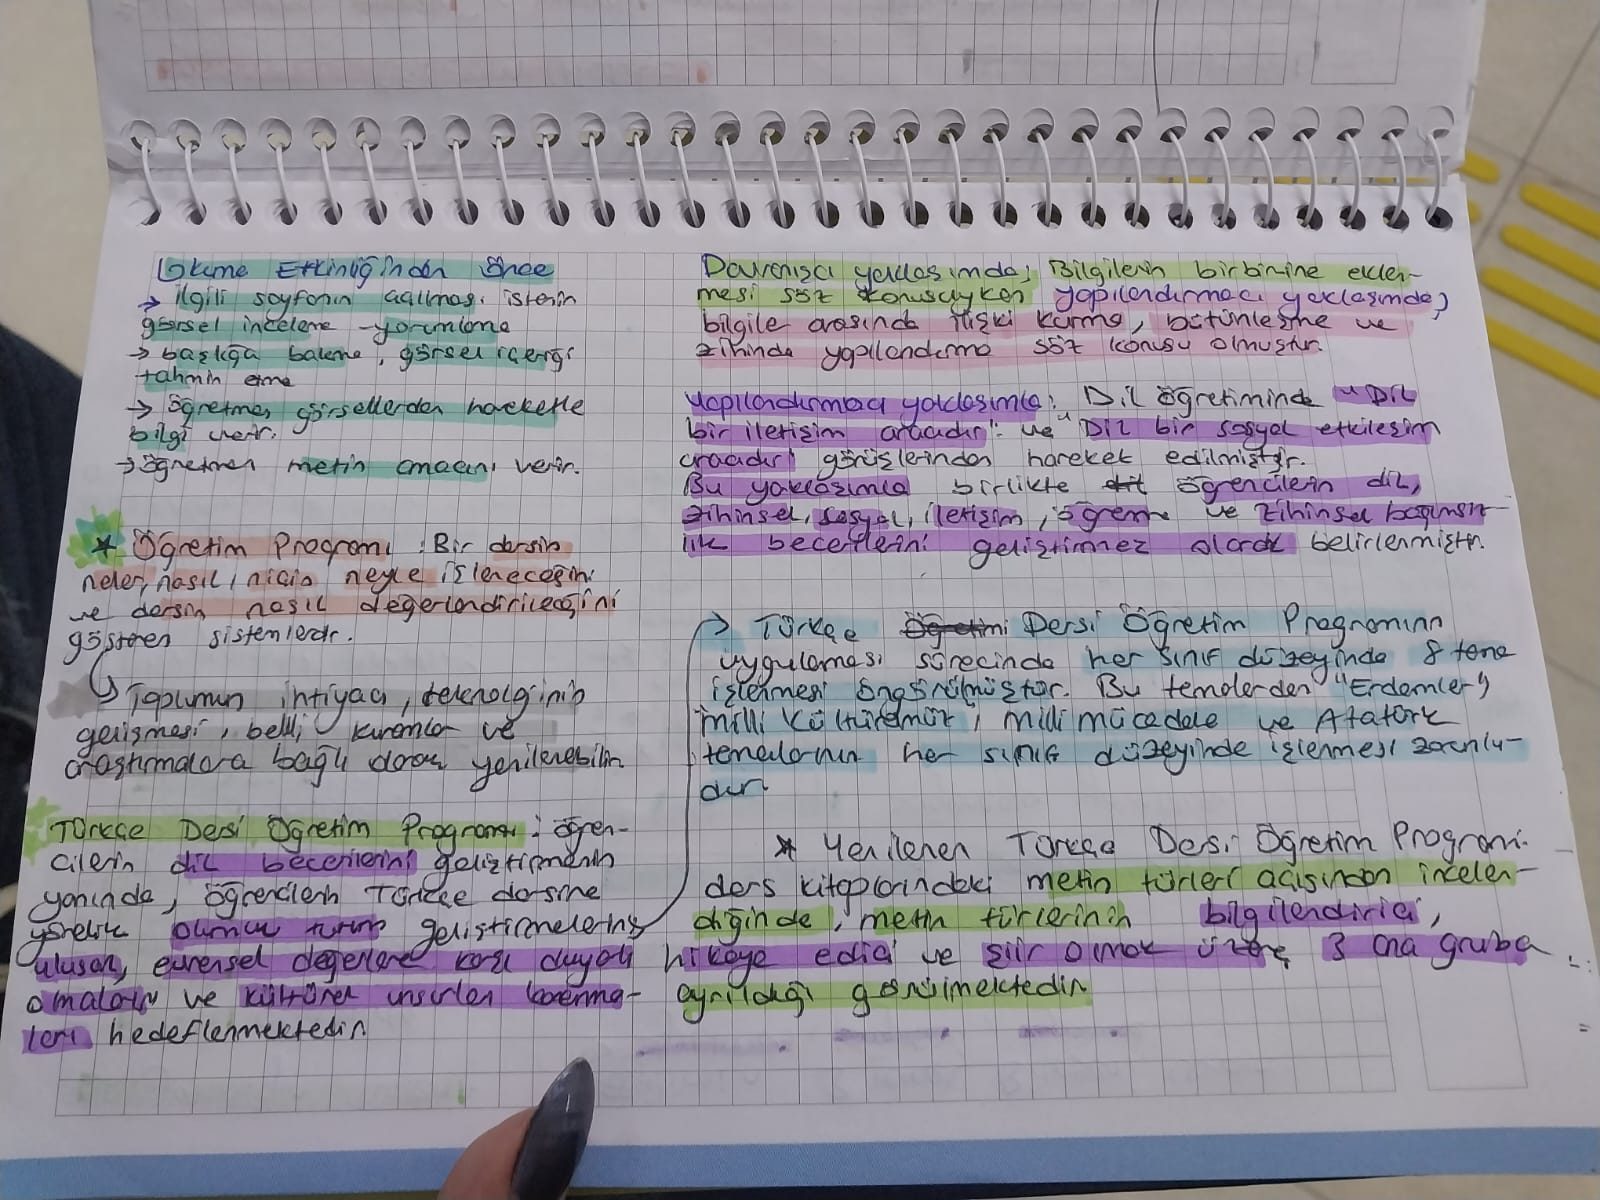 Okuma Etkinliğinden Önce
→ ilgili sayfanın açılması istenir
görsel inceleme - yorumlama
→ başlığa bakma, görsel içeriği
tahmin etme
→ Öğretmen görsellerden hareketle
bilgi verir.
→ Öğretmen metin amacını verir.
* Öğretim Programı : Bir dersin
neler, nasıl, niçin neyle işleneceğini
ve dersin nasıl değerlendirileceğini
gösteren sistemlerdir.
→ Toplumun ihtiyacı, teknolojinin
gelişmesi, belli kuramlar ve
araştırmalara bağlı olarak yenilenebilir.
Türkçe Dersi Öğretim Programı : öğren-
cilerin dil becerilerini geliştirmenin
yanında, öğrencilerin Türkçe dersine
yönelik olumlu tutum geliştirmelerini,
ulusal, evrensel değerlere karşı duyarlı
olmaları ve kültürel unsurları kazanma-
ları hedeflenmektedir.
Davranışçı yaklaşımda; Bilgilerin birbirine eklen-
mesi söz konusuyken yapılandırmacı yaklaşımda;
bilgile arasında ilişki kurma, bütünleşme ve
zihinde yapılandırma söz konusu olmuştur.
Yapılandırmacı yaklaşımla; Dil öğretiminde "Dil
bir iletişim aracıdır". ve "Dil bir sosyal etkileşim
aracıdır" görüşlerinden hareket edilmiştir.
Bu yaklaşımla birlikte dil öğrencilerin dil,
zihinsel, sosyal, iletişim, öğrenme ve zihinsel bağımsız-
lık becerilerini geliştirmek olarak belirlenmiştir.
→ Türkçe Öğretimi Dersi Öğretim Programının
uygulaması sürecinde her sınıf düzeyinde 8 tema
işlenmesi öngörülmüştür. Bu temalardan "Erdemler"
Milli Kültürümüz, Milli mücadele ve Atatürk
temalarının her sınıf düzeyinde işlenmesi zorunlu-
dur.
* Yenilenen Türkçe Dersi Öğretim Programı
ders kitaplarındaki metin türleri açısından incelen-
diğinde, metin türlerinin bilgilendirici,
hikaye edici ve şiir olmak üzere 3 ana gruba
ayrıldığı görülmektedir